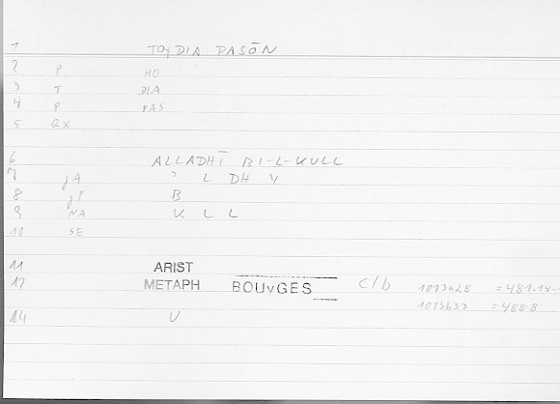 1 TOY DIA PASŌN
2 P HO
3 T DIA
4 P PAS
5 QX
6 ALLADHĪ BI-L-KULL
7 JA ' L DH Y
8 JP B
9 NA K L L
10 SE
11 ARIST
12 METAPH BOUvGES c/b 1013a28 = 481.18-
1013b33 = 488.8
14 V